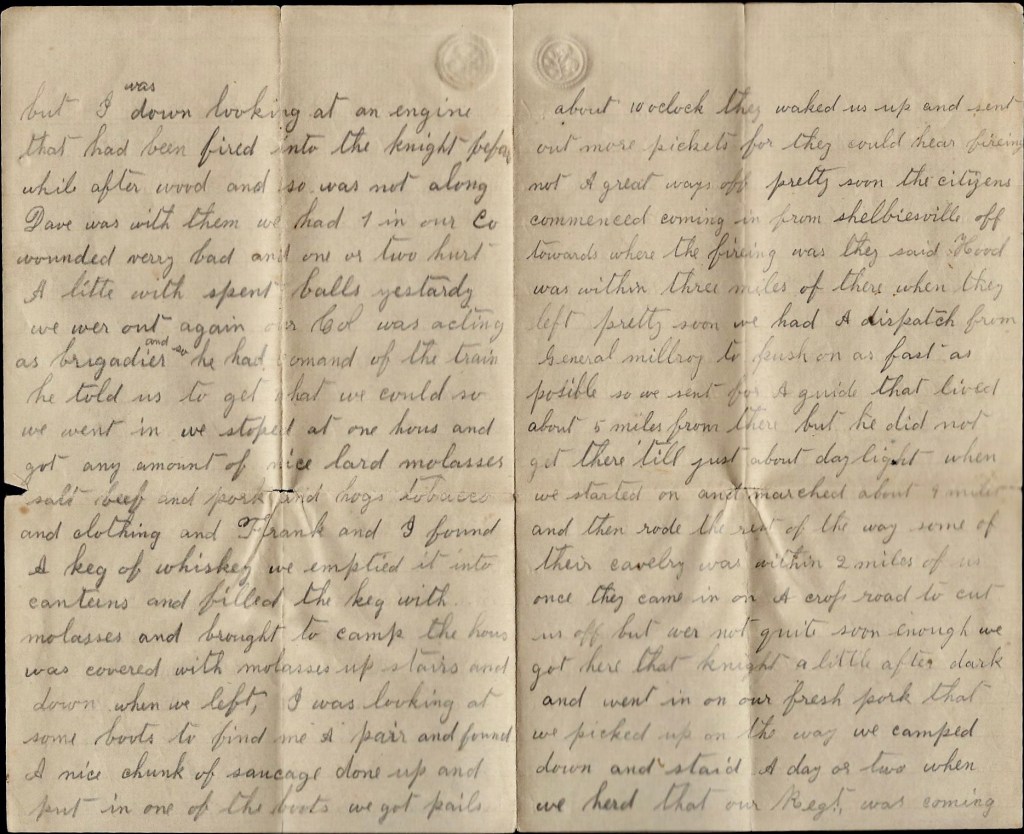 but I was down looking at an engine
that had been fired into the knight before
while after wood and so was not along
Dave was with them we had 1 in our Co
wounded verry bad and one or two hurt
A litte with spent balls yestardy
we wer out again our Col was acting
as brigadier and so he had comand of the train
he told us to get what we could so
we went in we stoped at one hous and
got any amount of nice lard molasses
salt beef and pork and hogs tobacco
and clothing and Frank and I found
A keg of whiskey we emptied it into
canteens and filled the keg with
molasses and brought to camp the hous
was covered with molasses up stairs and
down when we left, I was looking at
some boots to find me A pair and found
A nice chunk of saucage done up and
put in one of the boots we got pails
about 10 oclock they waked us up and sent
out more pickets for they could hear fireing
not A great ways off pretty soon the citizens
commenced coming in from shelbiesville off
towards where the fireing was they said Hood
was within three miles of there when they
left pretty soon we had A dispatch from
General millroy to push on as fast as
posible so we sent for A guide that lived
about 5 miles from there but he did not
get there till just about daylight when
we started on and marched about 4 miles
and then rode the rest of the way some of
their cavelry was within 2 miles of us
once they came in on A cross road to cut
us off but wer not quite soon enough we
got here that knight a little after dark
and went in on our fresh pork that
we picked up on the way we camped
down and staid A day or two when
we herd that our Regt, was coming